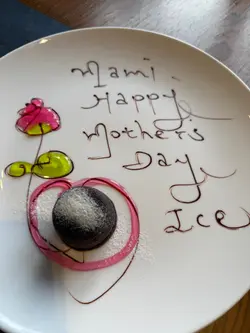 Mami
Happy
Mothers
Day
Ice